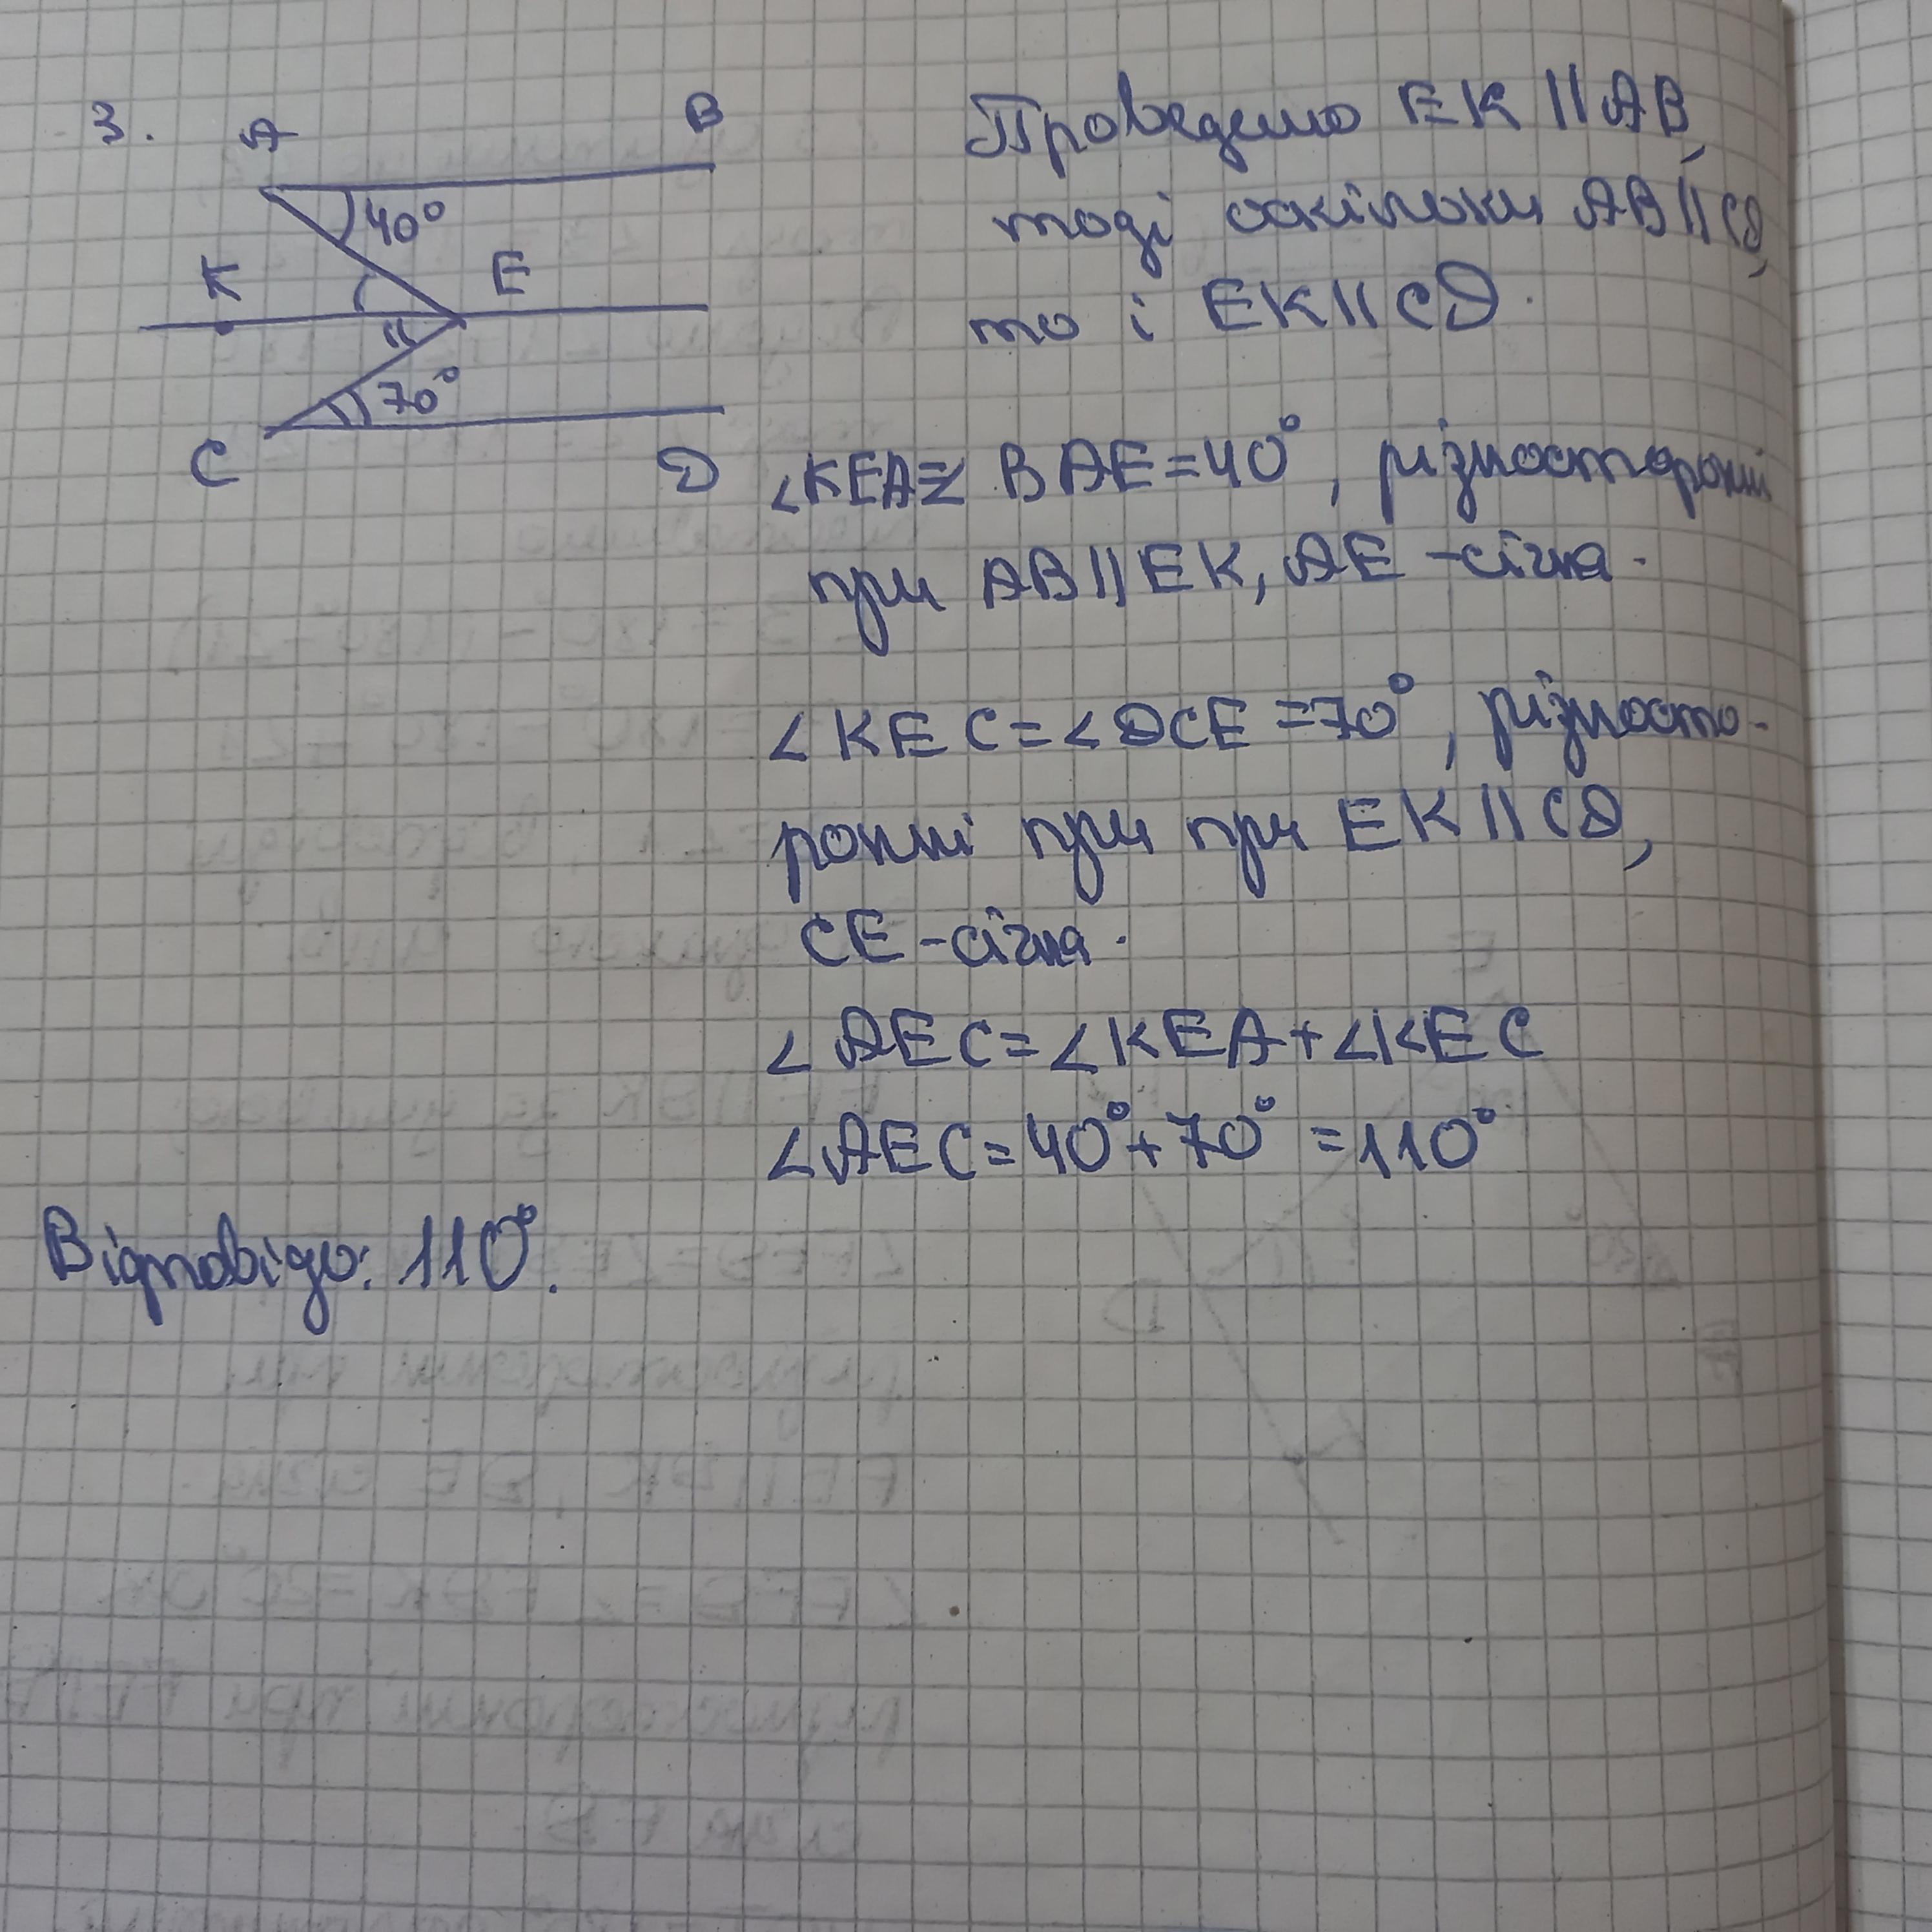 3.
A
B
40°
K
E
70°
C
D
Проведемо EK || AB,
тоді оскільки AB || CD,
то і EK || CD.
∠KEA=∠ BAE = 40°, різносторонні
при AB || EK, AE - січна.
∠KEC = ∠DCE = 70°, різносто-
ронні при при EK || CD,
CE - січна.
∠AEC = ∠KEA + ∠KEC
∠AEC = 40° + 70° = 110°
Відповідь: 110°.